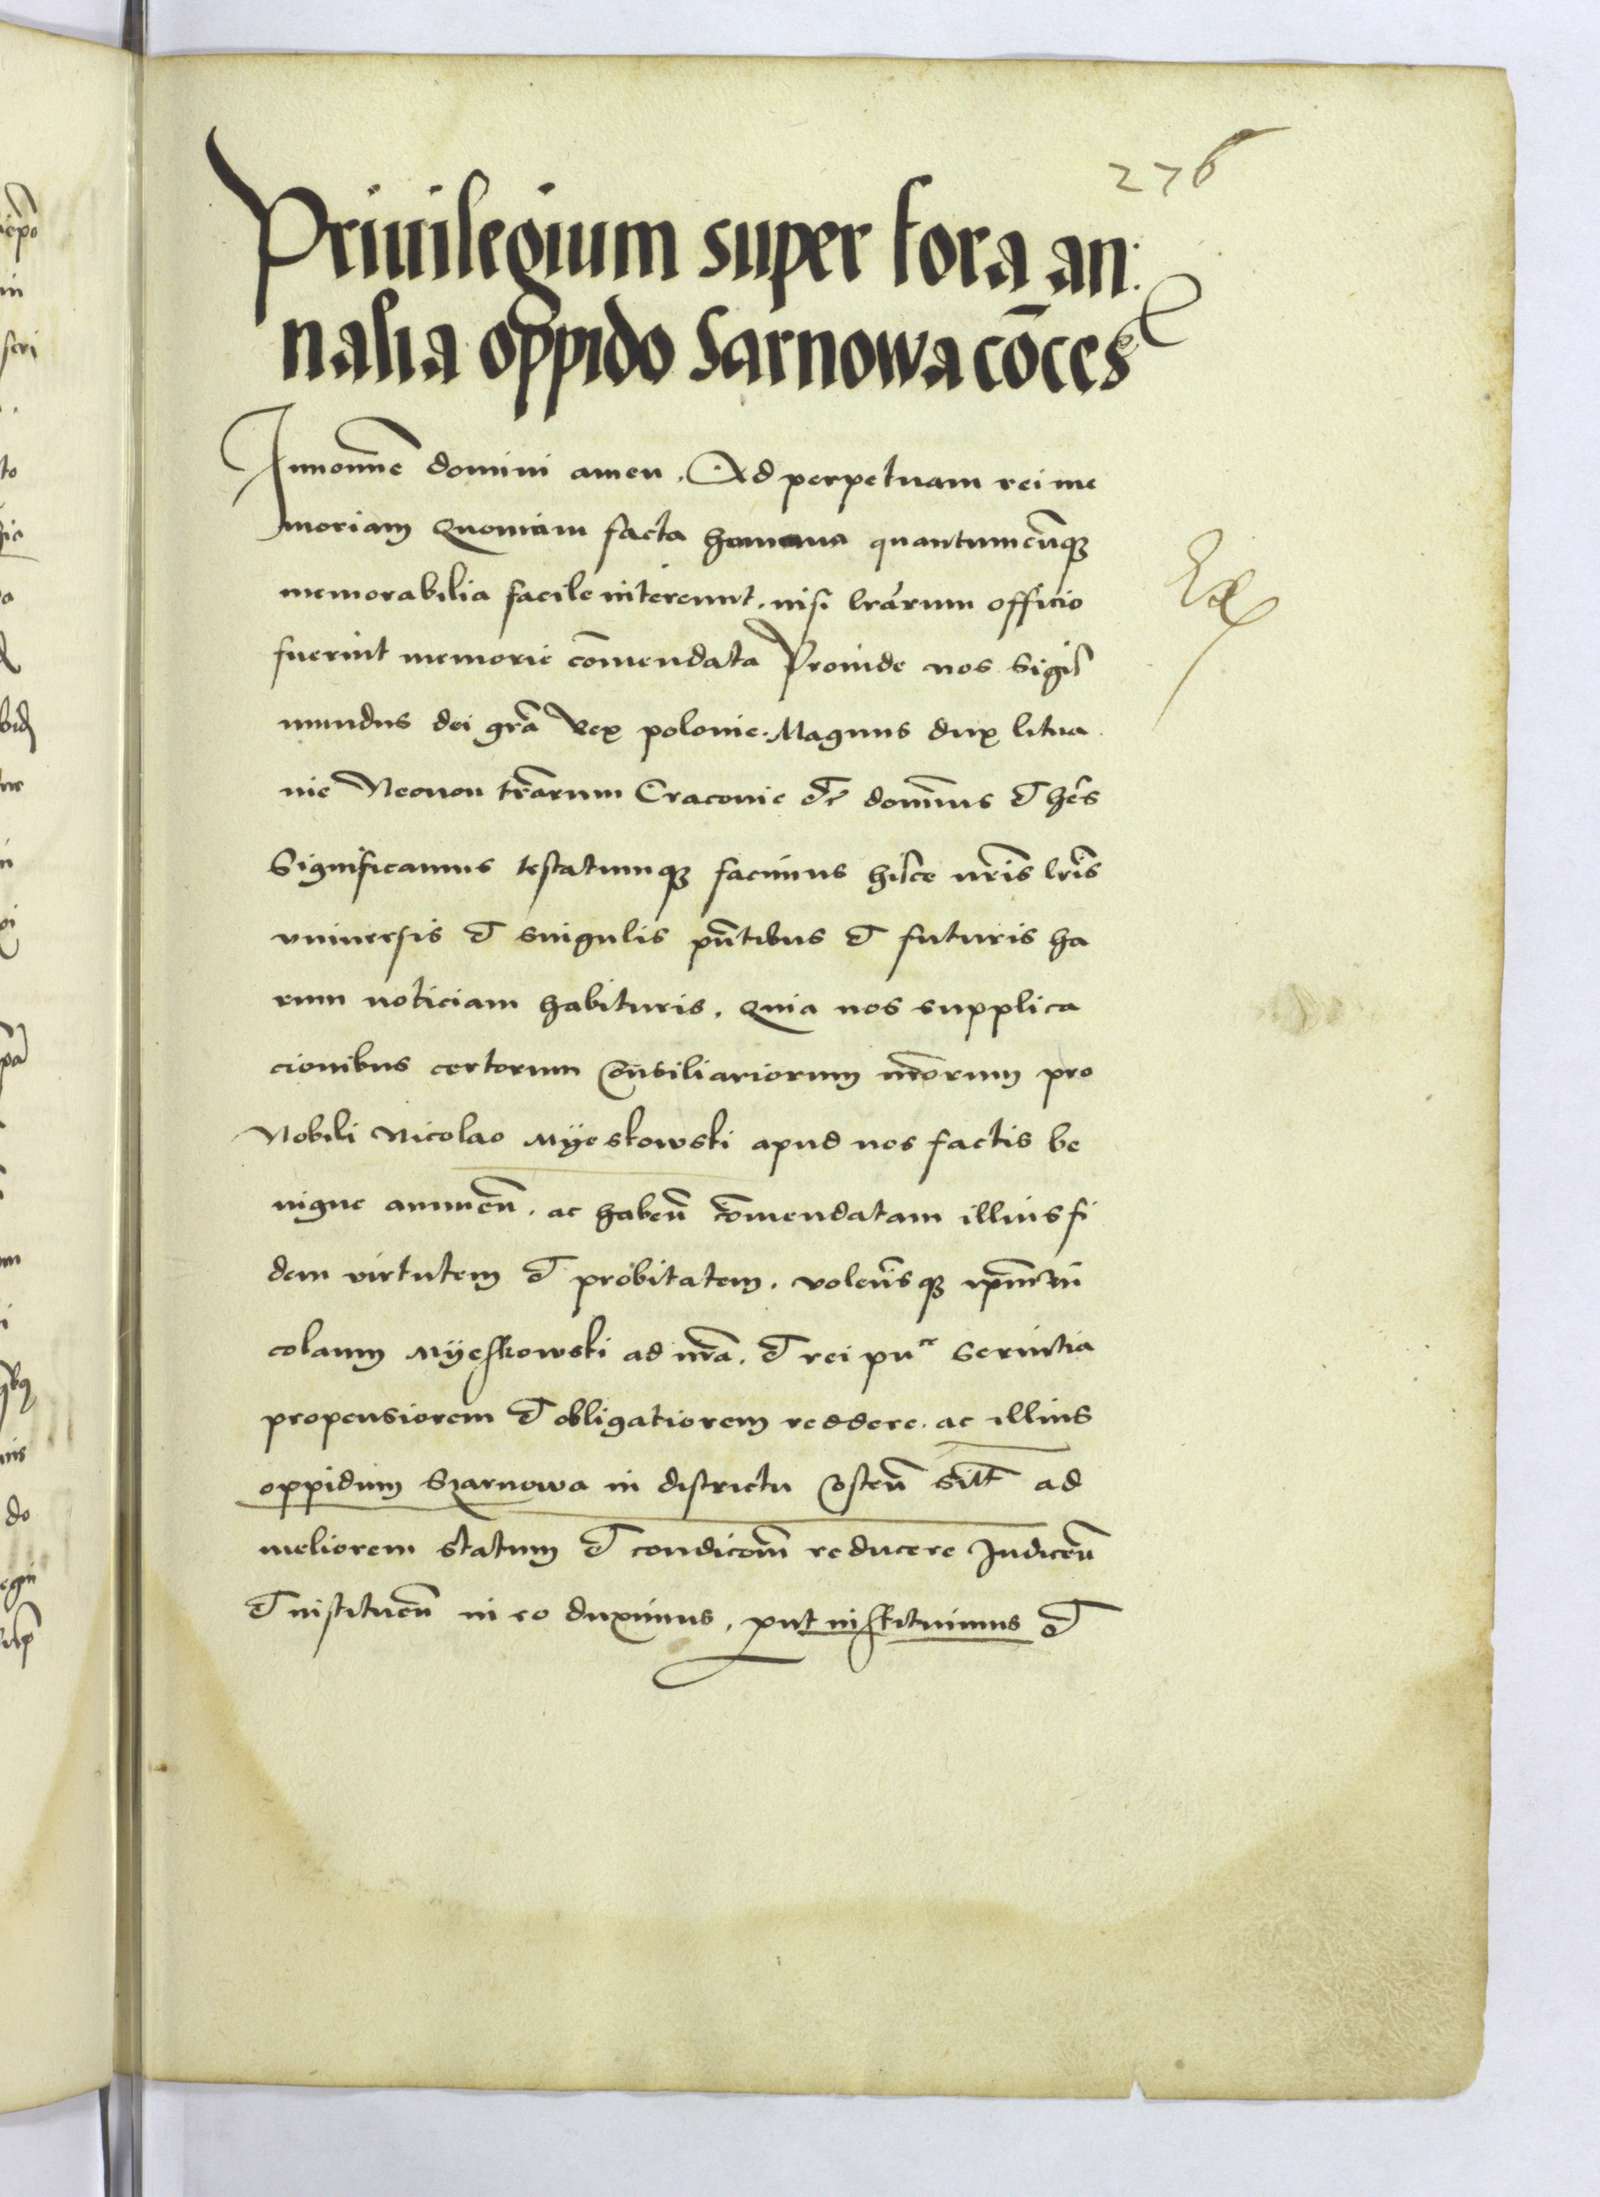 276
Priuilegium super fora an:
nalia oppido Sarnowa cōces
Innomīe domini amen . Ad perpetuam rei me
moriam Quoniam facta humana quantumcūqꝫ
memorabilia facile intereunt . nisi lrārum officio
fuerint memorie cōmendata Proinde nos Sigis
mundus dei grā Rex polonie . Magnus dux litua
nie Necnon trārum Cracovie etc̄ domīnus et hēs
Significamus testatumqꝫ facimus hisce nrīs lrīs
vniuersis et singulis pn̄tibus et futuris ha
rum noticiam habituris . Quia nos supplica
cionibus certorum Cōnsiliariorum nrōrum pro
Nobili Nicolao Myeskowski apud nos factis be
nigne annuen̄ . ac haben̄ cōmendatam illius fi
dem virtutem et probitatem . volen̄sqꝫ ip̄m Ni
colaum Myeskowski ad nrā . et rei puce seruitia
propensiorem et obligatiorem reddere . ac illius
oppidum Szarnowa in districtu Costen̄ sitt̄ ad
meliorem statum et condicōm̄ reducere Indicen̄
et instituen̄ in eo duximus . put instituimus et